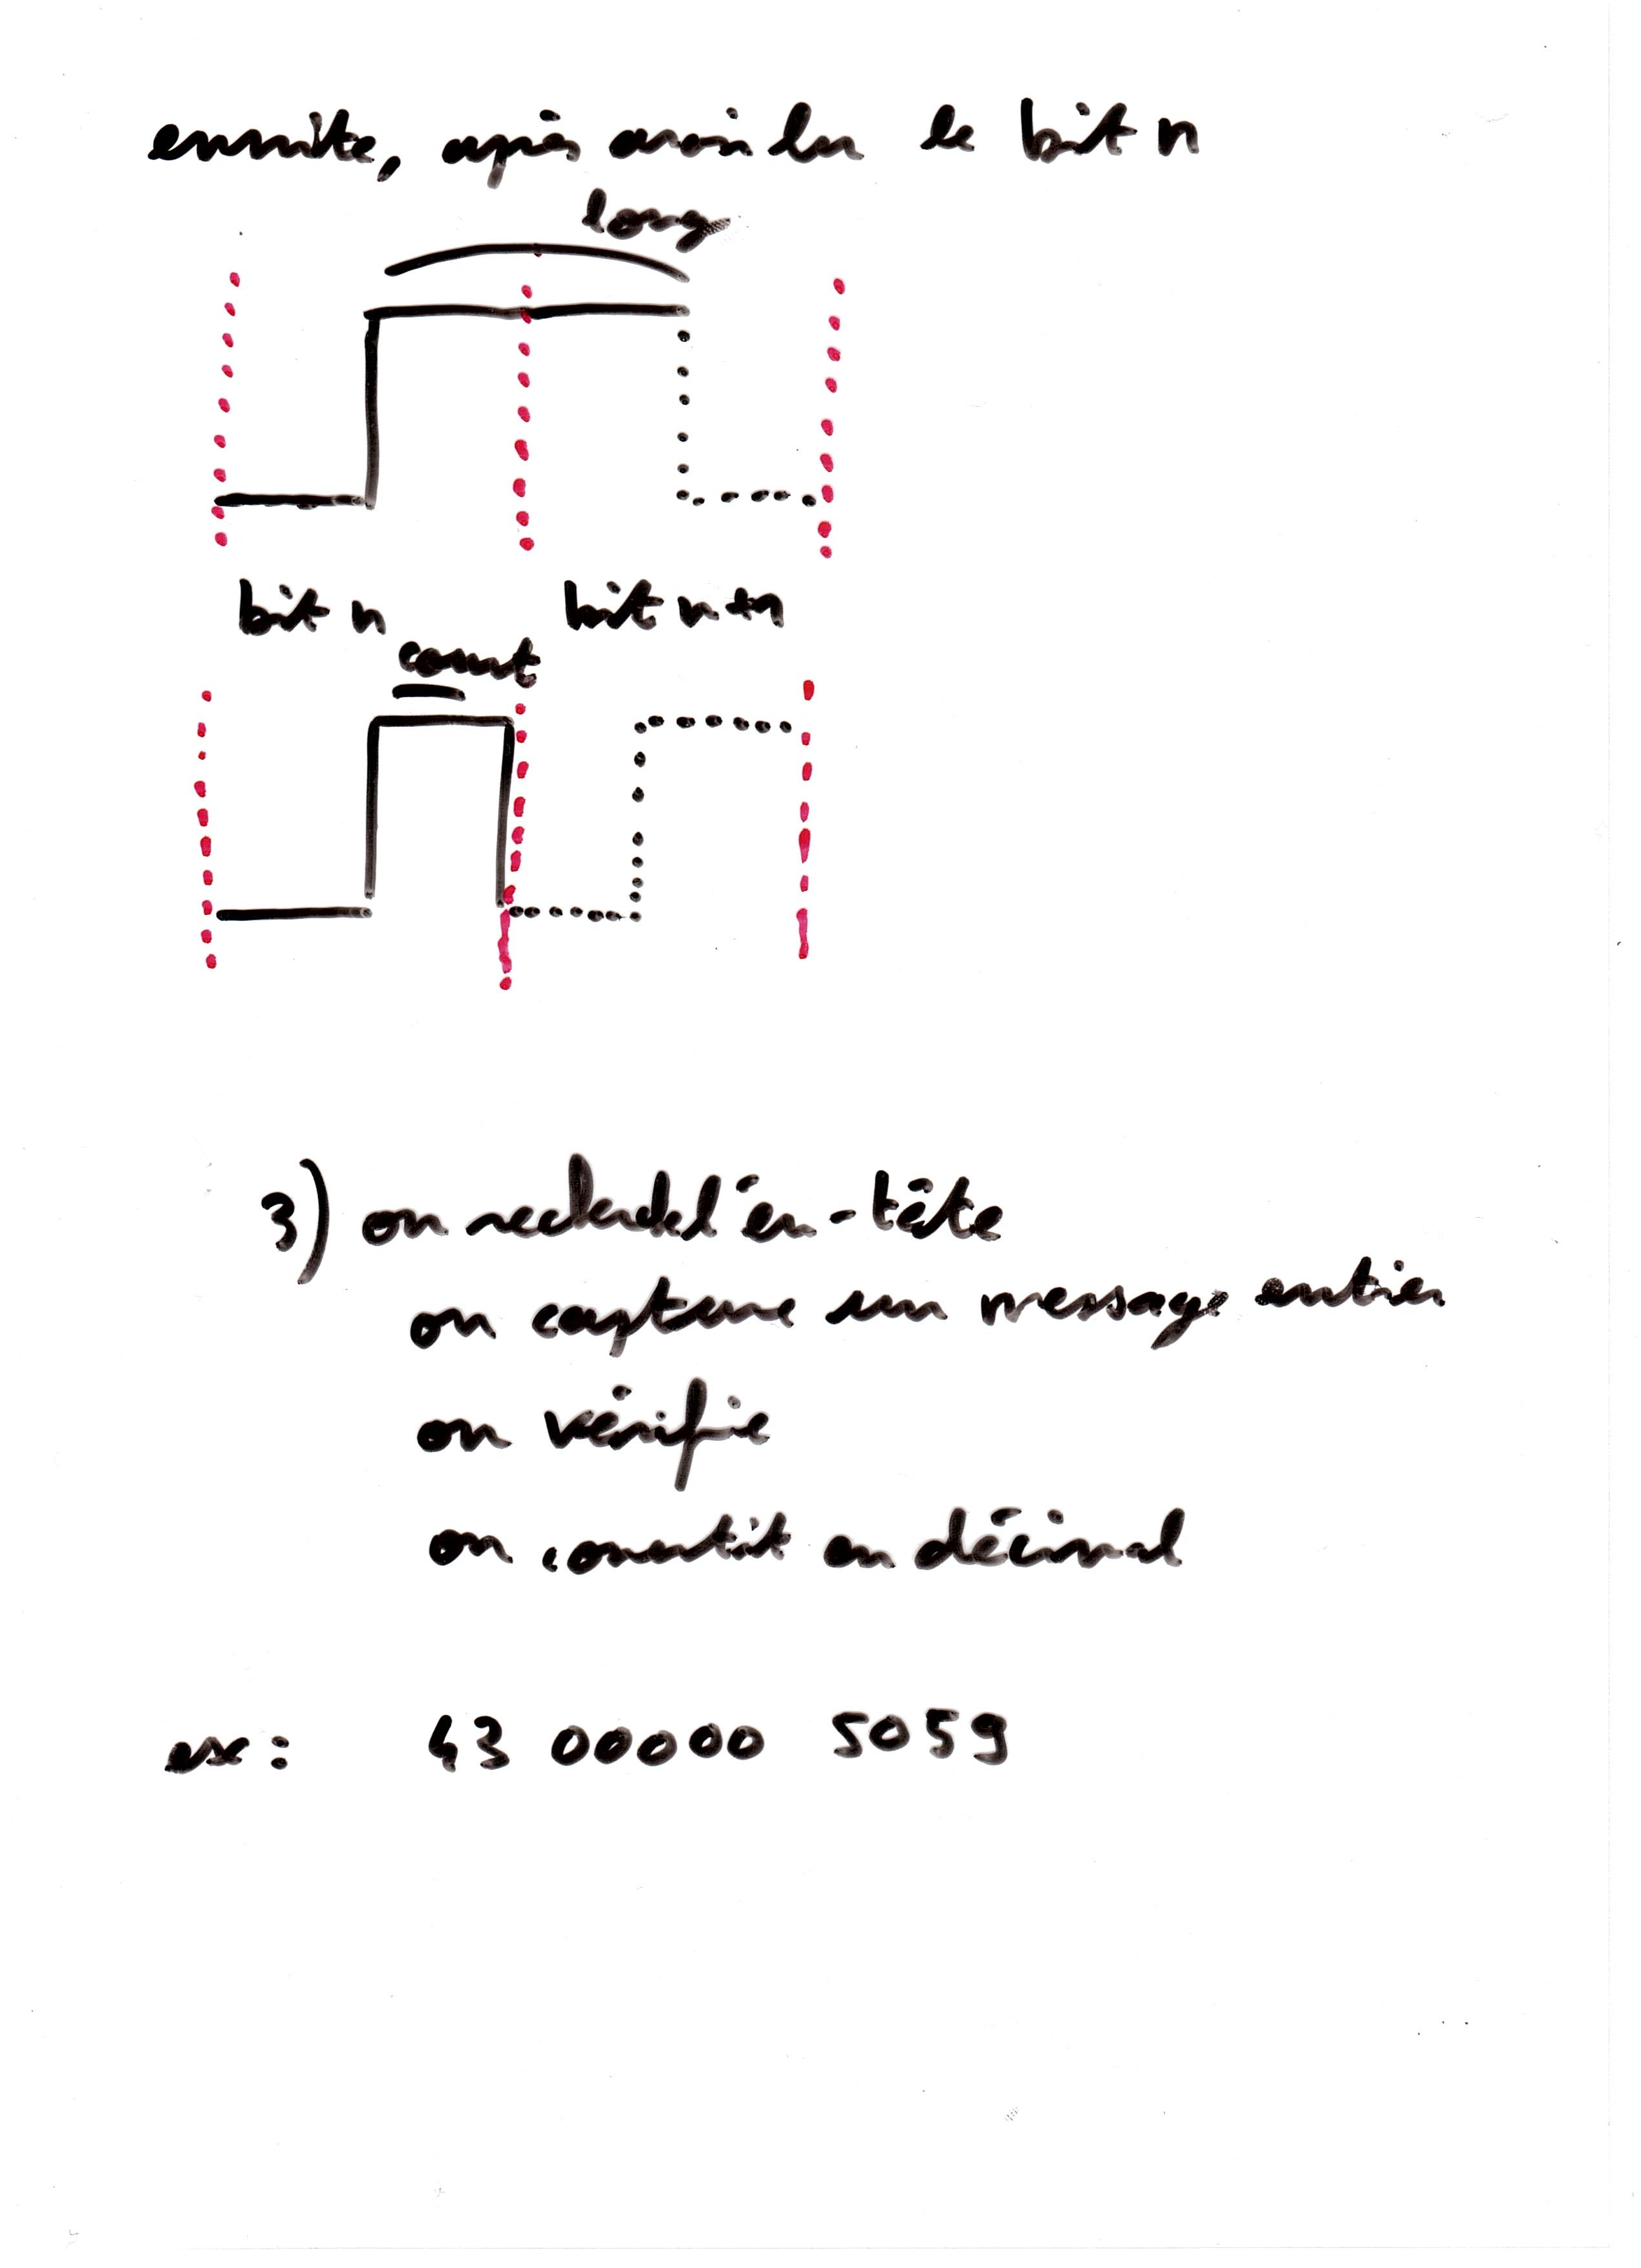 ensuite, après avoir lu le bit n
long
bit n bit n+1
court
3) on recherche l'en-tête
on capture un message entier
on vérifie
on convertit en décimal
ex: 43 00000 5059